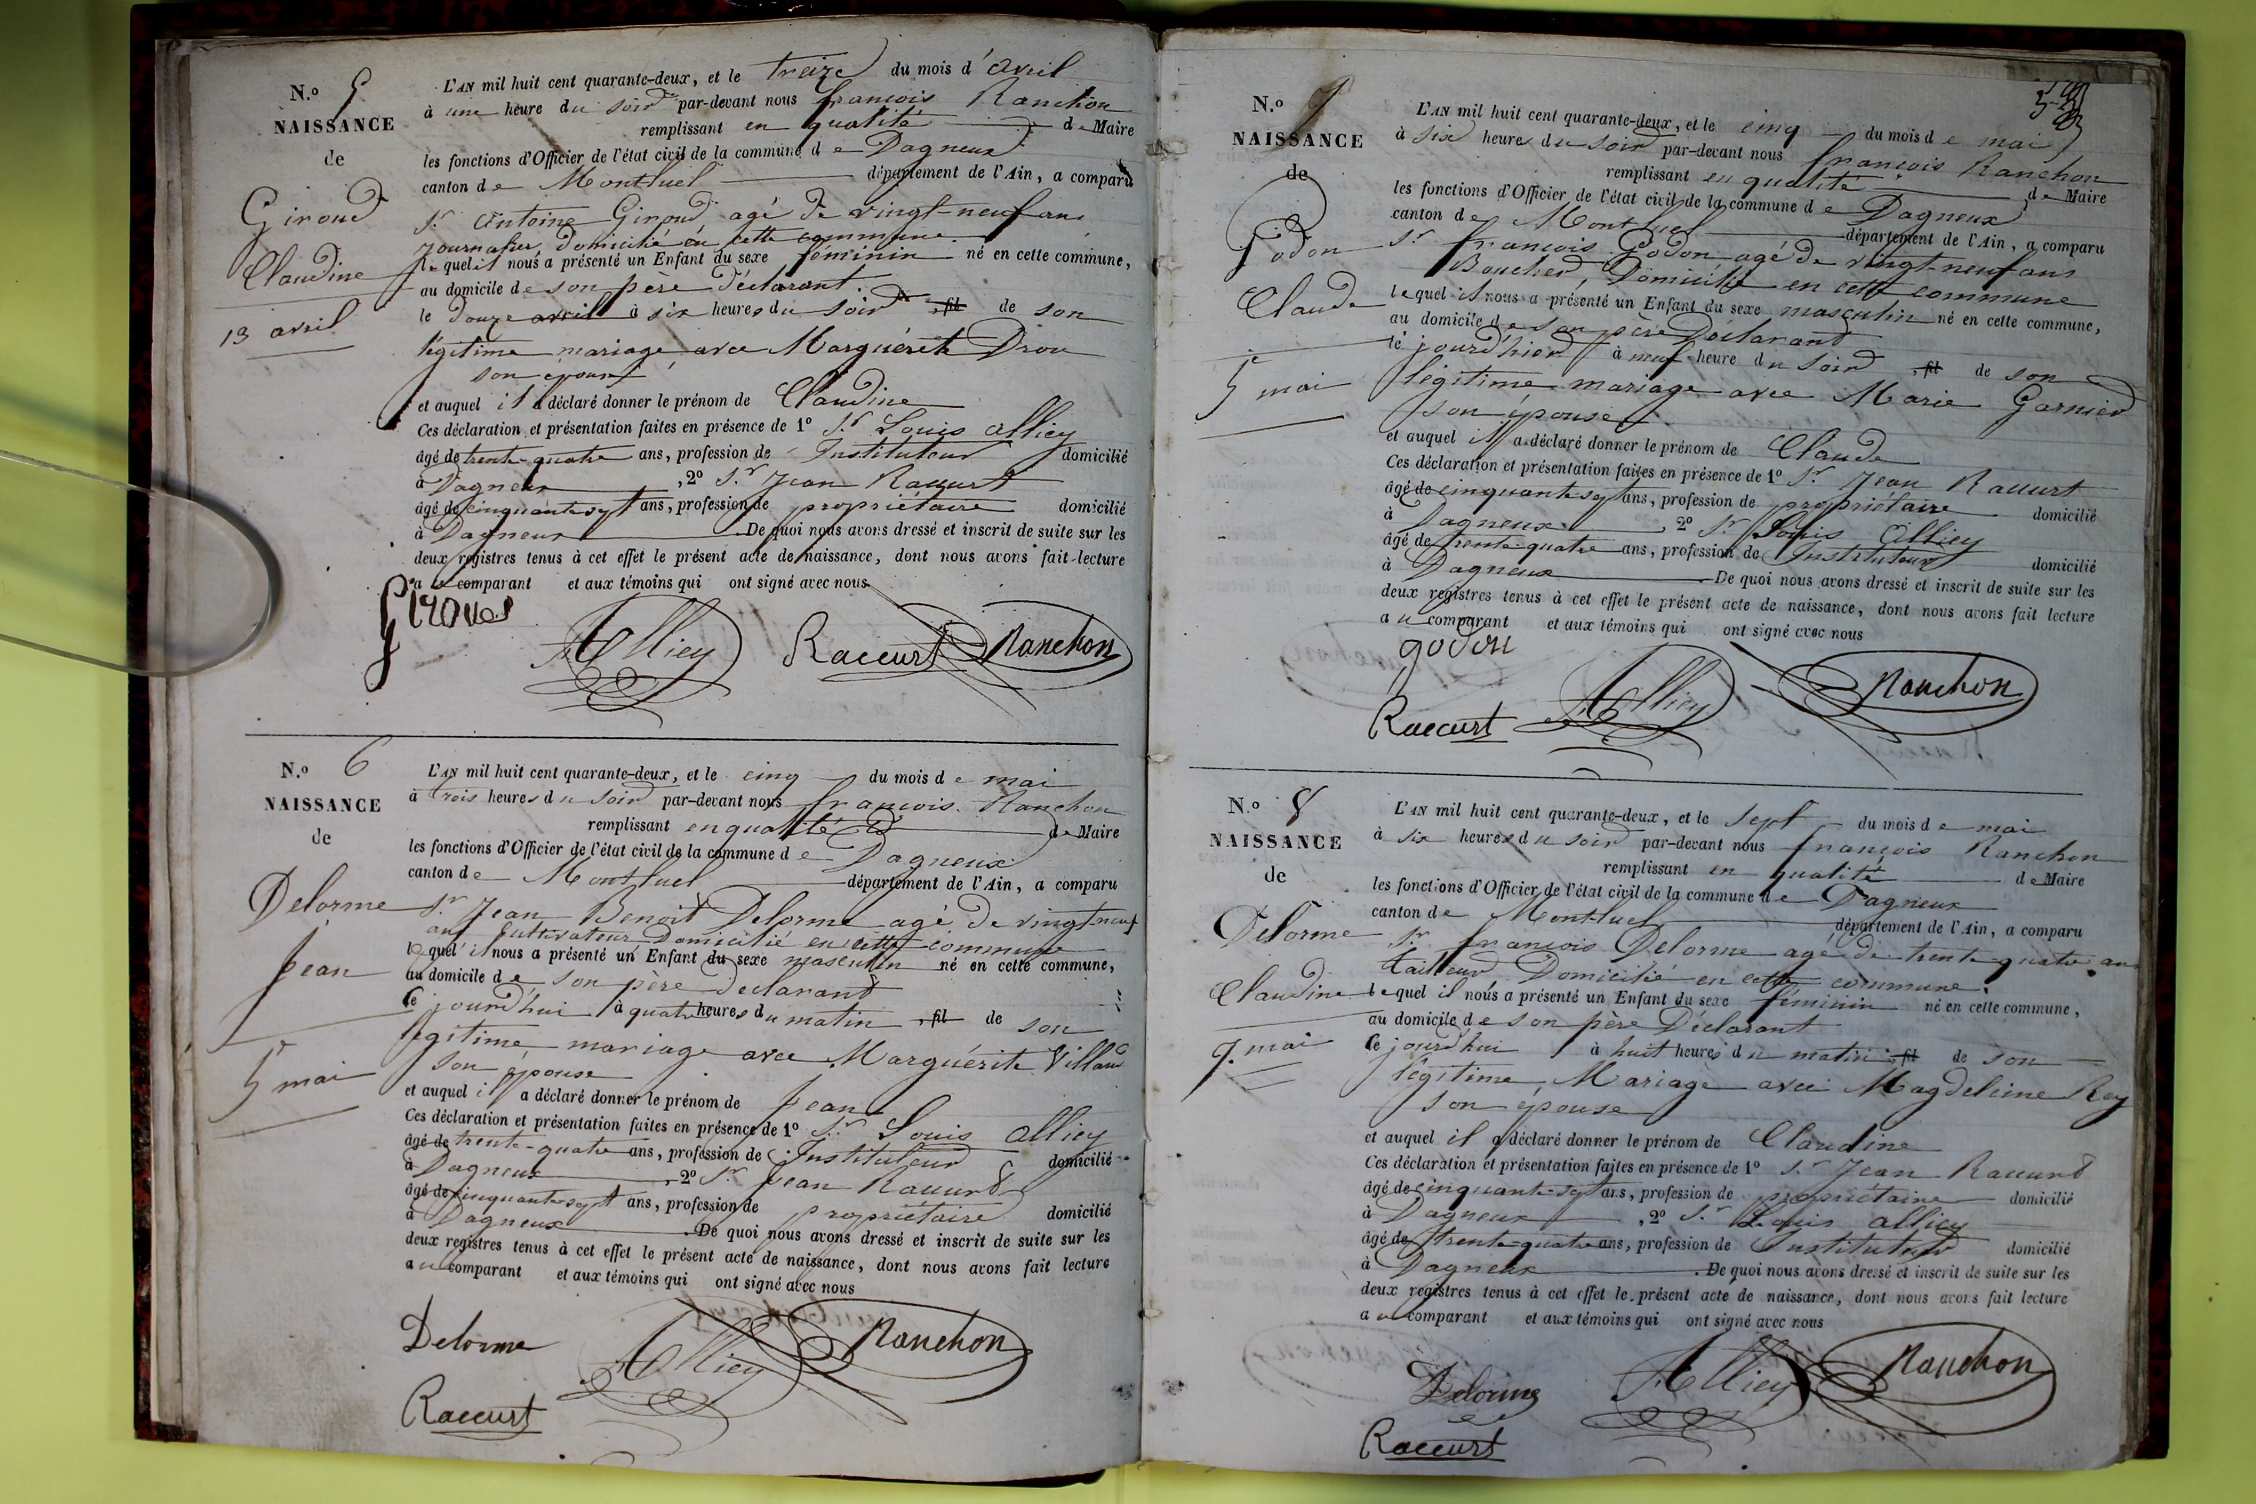 N.o 5
NAISSANCE
de
Giroud
Claudine
13 avril
L'AN mil huit cent quarante-deux, et le treize du mois d'avril
à une heure du soir par-devant nous françois Ranchon
remplissant en qualité de Maire
les fonctions d'Officier de l'état civil de la commune de Dagneux
canton de Montluel département de l'Ain, a comparu
Sr. Antoine Giroud agé de vingt-neuf ans
journalier, domicilié en cette commune
lequel il nous a présenté un Enfant du sexe féminin né en cette commune,
au domicile de son père déclarant.
le douze avril à six heures du soir, fil de son
légitime mariage avec Marguérite Drou
son épouse
et auquel il a déclaré donner le prénom de Claudine
Ces déclaration et présentation faites en présence de 1o Sr Louis Alliey
âgé de trente-quatre ans, profession de Instituteur domicilié
à Dagneux, 2o Sr Jean Raccurt
âgé de cinquante sept ans, profession de propriétaire domicilié
à Dagneux De quoi nous avons dressé et inscrit de suite sur les
deux registres tenus à cet effet le présent acte de naissance, dont nous avons fait lecture
au comparant et aux témoins qui ont signé avec nous
Alliey Raccurt Ranchon
N.o 6
NAISSANCE
de
Delorme
Jean
5 mai
L'AN mil huit cent quarante-deux, et le cinq du mois de mai
à trois heures du soir par-devant nous françois Ranchon
remplissant en qualité de Maire
les fonctions d'Officier de l'état civil de la commune de Dagneux
canton de Montluel département de l'Ain, a comparu
Sr. Jean Benoit Delorme agé de vingt neuf
ans Cultivateur Domicilié en cette commune
lequel il nous a présenté un Enfant du sexe masculin né en cette commune,
au domicile de son père déclarant
Ce jourd'hui à quatre heures du matin, fil de son
légitime mariage avec Marguérite Villaud
son épouse
et auquel il a déclaré donner le prénom de Jean
Ces déclaration et présentation faites en présence de 1o Sr. Louis Alliey
âgé de trente-quatre ans, profession de Instituteur domicilié
à Dagneux, 2o Sr Jean Raccurt
âgé de cinquante sept ans, profession de propriétaire domicilié
à Dagneux. De quoi nous avons dressé et inscrit de suite sur les
deux registres tenus à cet effet le présent acte de naissance, dont nous avons fait lecture
au comparant et aux témoins qui ont signé avec nous
Delorme Alliey Ranchon
Raccurt
N.o 7
NAISSANCE
de
Godon
Claude
5 mai
L'AN mil huit cent quarante-deux, et le cinq du mois de mai
à six heures du soir par-devant nous françois Ranchon
remplissant en qualité de Maire
les fonctions d'Officier de l'état civil de la commune de Dagneux
canton de Montluel département de l'Ain, a comparu
Sr françois Godon agé de vingt-neuf ans
Boucher, Domicilié en cette commune
lequel il nous a présenté un Enfant du sexe masculin né en cette commune,
au domicile de son père Déclarant
le jourd'hier à neuf heure du soir, fil de son
légitime mariage avec Marie Garnier
son épouse
et auquel il a déclaré donner le prénom de Claude
Ces déclaration et présentation faites en présence de 1o Sr Jean Raccurt
âgé de cinquante sept ans, profession de propriétaire domicilié
à Dagneux, 2o Sr Louis Alliey
âgé de trente-quatre ans, profession de Instituteur domicilié
à Dagneux De quoi nous avons dressé et inscrit de suite sur les
deux registres tenus à cet effet le présent acte de naissance, dont nous avons fait lecture
au comparant et aux témoins qui ont signé avec nous
godon
Raccurt Alliey Ranchon
N.o 8
NAISSANCE
de
Delorme
Claudine
7. mai
L'AN mil huit cent quarante-deux, et le sept du mois de mai
à six heures du soir par-devant nous françois Ranchon
remplissant en qualité de Maire
les fonctions d'Officier de l'état civil de la commune de Dagneux
canton de Montluel département de l'Ain, a comparu
Sr. françois Delorme agé de trente quatre ans
tailleur Domicilié en cette commune.
lequel il nous a présenté un Enfant du sexe féminin né en cette commune,
au domicile de son père Déclarant
Ce jourd'hui à huit heures du matin, fil de son
légitime Mariage avec Magdeleine Rey
son épouse
et auquel il a déclaré donner le prénom de Claudine
Ces déclaration et présentation faites en présence de 1o Sr Jean Raccurt
âgé de cinquante sept ans, profession de propriétaire domicilié
à Dagneux, 2o Sr Louis Alliey
âgé de trente-quatre ans, profession de Instituteur domicilié
à Dagneux. De quoi nous avons dressé et inscrit de suite sur les
deux registres tenus à cet effet le présent acte de naissance, dont nous avons fait lecture
au comparant et aux témoins qui ont signé avec nous
Delorme Alliey Ranchon
Raccurt